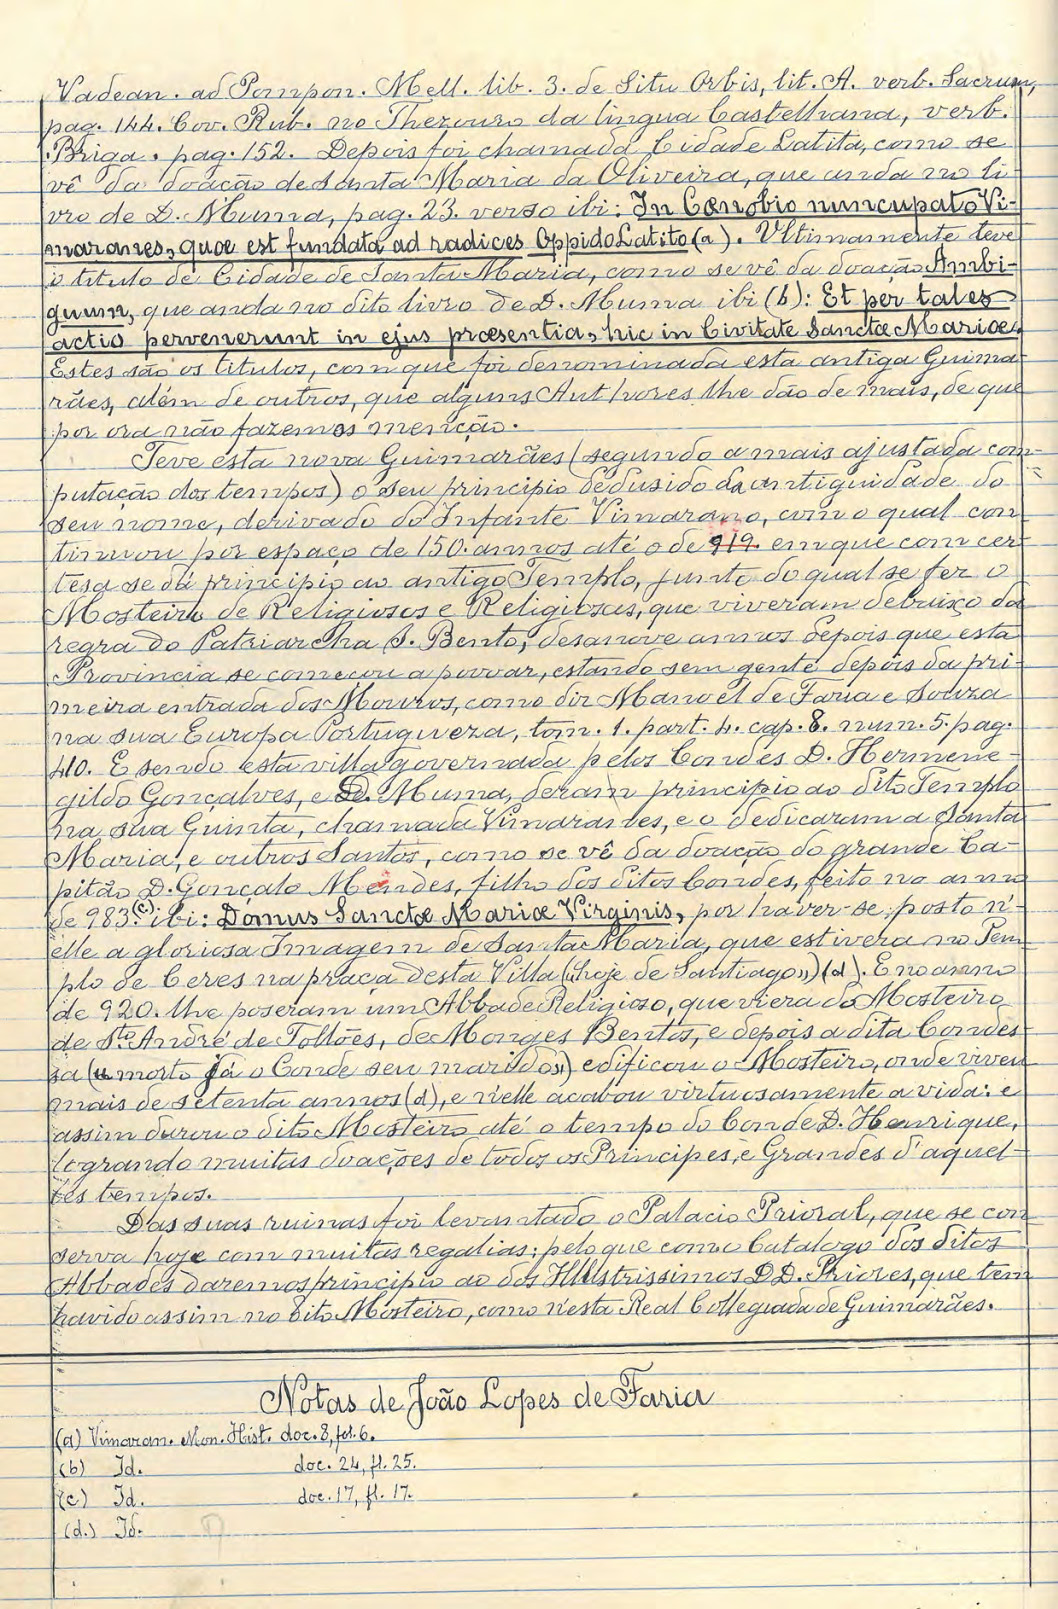 Vadean. ad Pompon. Mell. lib. 3. de Situ Orbis, lit. A. verb. Sacrum,
pag. 144. Cov. Rub. no Thezouro da lingua Castelhana, verb.
Briga, pag. 152. Depois foi chamada Cidade Latita, como se
vê da doação de Santa Maria da Oliveira, que anda no li-
vro de D. Muma, pag. 23. verso ibi: In Cenobio nuncupato Vi-
maranes, quoe est fundata ad radices Oppido Latito (a). Ultimamente teve
o titulo de Cidade de Santa Maria, como se vê da doação Ambi-
guum, que anda no dito livro de D. Muma ibi (b): Et per tales
actio pervenerunt in ejus proesentia, hic in Civitate Sanctæ Marioe.
Estes são os titulos, com que foi denominada esta antiga Guima-
rães, além de outros, que alguns Authores lhe dão de mais, de que
por ora não fazemos menção.
Teve esta nova Guimarães (segundo a mais ajustada com-
putação dos tempos) o seu principio dedusido da antiguidade do
seu nome, derivado do Infante Vimarano, com o qual con-
tinuou por espaço de 150. annos até o de 919. em que com cer-
tesa se dá principio ao antigo Templo, junto do qual se fez o
Mosteiro de Religiosos e Religiosas, que viveram debaixo da
regra do Patriarcha S. Bento, desanove annos depois que esta
Provincia se começou a povoar, estando sem gente depois da pri-
meira entrada dos Mouros, como diz Manoel de Faria e Souza
na sua Europa Portugueza, tom. 1. part. 4. cap. 8. num. 5. pag.
410. E sendo esta villa governada pelos Condes D. Hermene-
gildo Gonçalves, e D. Muma, deram principio ao dito Templo
na sua Quinta, chamada Vimaranes, e o dedicaram a Santa
Maria, e outros Santos, como se vê da doação do grande Ca-
pitão D. Gonçalo Mendes, filho dos ditos Condes, feito no anno
de 983. (c) ibi: Domus Sanctæ Mariæ Virginis, por haver-se posto n'-
elle a gloriosa Imagem de Santa Maria, que estivera no Tem-
plo de Ceres na praça desta Villa («hoje de Santiago») (d). E no anno
de 920. lhe poseram um Abbade Religioso, que viera do Mosteiro
de Sto. André de Tollões, de Monges Bentos, e depois a dita Condes-
sa («morto já o Conde seu marido») edificou o Mosteiro, onde viveu
mais de setenta annos (d), e n'elle acabou virtuosamente a vida: e
assim durou o dito Mosteiro até o tempo do Conde D. Henrique,
logrando muitas doações de todos os Principes, e Grandes d'aquel-
les tempos.
Das suas ruinas foi levantado o Palacio Prioral, que se con-
serva hoje com muitas regalias; pelo que com o Catalogo dos ditos
Abbades daremos principio ao dos Illustrissimos DD. Priores, que tem
havido assim no dito Mosteiro, como n'esta Real Collegiada de Guimarães.
Notas de João Lopes de Faria
(a) Vimaran. Mon. Hist. doc. 8, fol. 6.
(b) Id. doc. 24, fl. 25.
(c) Id. doc. 17, fl. 17.
(d.) Id.